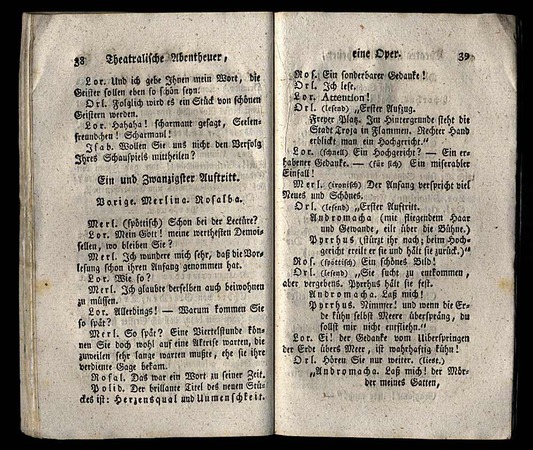 38 Theatralische Abentheuer,
Lor. Und ich gebe Ihnen mein Wort, die
Geister sollen eben so schön seyn.
Orl. Folglich wird es ein Stück von schönen
Geistern werden.
Lor. Hahaha! scharmant gesagt, Seelen-
freundchen! Scharmant!
Isab. Wollen Sie uns nicht den Verfolg
Ihres Schauspiels mittheilen?
Ein und Zwanzigster Auftritt.
Vorige. Merlina. Rosalba.
Merl. (spöttisch) Schon bei der Lectüre?
Lor. Mein Gott! meine werthesten Demoi-
sellen, wo bleiben Sie?
Merl. Ich wundere mich sehr, daß die Vor-
lesung schon ihren Anfang genommen hat.
Lor. Wie so?
Merl. Ich glaubte derselben auch beiwohnen
zu müssen.
Lor. Allerdings! — Warum kommen Sie
so spät?
Merl. So spät? Eine Viertelstunde kön-
nen Sie doch wohl auf eine Aktrise warten, die
zuweilen sehr lange warten mußte, ehe sie ihre
verdiente Gage bekam.
Rosal. Das war ein Wort zu seiner Zeit.
Polid. Der brillante Titel des neuen Stü-
ckes ist: Herzensqual und Unmenschkeit.
eine Oper. 39
Ros. Ein sonderbarer Gedanke!
Orl. Ich lese.
Lor. Attention!
Orl. (lesend) „Erster Aufzug.
Freyer Platz. Im Hintergrunde steht die
Stadt Troja in Flammen. Rechter Hand
erblickt man ein Hochgericht."
Lor. (schnell) Ein Hochgericht? — Ein er-
habener Gedanke. — (für sich) Ein miserabler
Einfall!
Merl. (ironisch) Der Anfang verspricht viel
Neues und Schönes.
Orl. (lesend) „Erster Auftritt.
Andromacha (mit fliegendem Haar
und Gewande, eilt über die Bühne.)
Pyrrhus (stürzt ihr nach; beim Hoch-
gericht ereilt er sie und hält sie zurück.)"
Ros. (spöttisch) Ein schönes Bild!
Orl. (lesend) „Sie sucht zu entkommen,
aber vergebens. Pyrrhus hält sie fest.
Andromacha. Laß mich!
Pyrrhus. Nimmer! und wenn die Er-
de kühn selbst Meere übersprang, du
sollst mir nicht entfliehn."
Lor. Ei! der Gedanke vom Ueberspringen
der Erde übers Meer, ist wahrhaftig kühn!
Orl. Hören Sie nur weiter. (liest.)
„Andromacha. Laß mich! der Mör-
der meines Gatten,